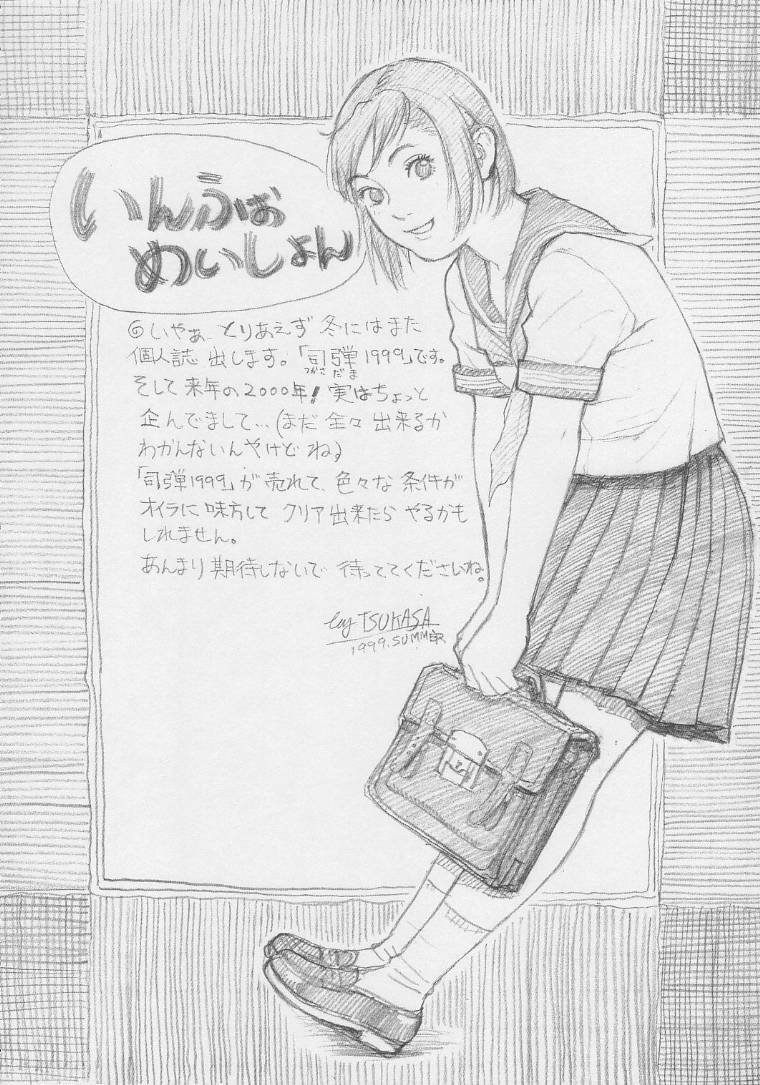 いんふぉ
めいしょん
◎いやぁ とりあえず 冬にはまた
個人誌 出します。「司弾1999」です。
つかさ だま
そして来年の2000年! 実はちょっと
企んでまして…(まだ 全々 出来るか
わかんないんやけど ね)
「司弾1999」が 売れて、色々な 条件が
オイラに味方して クリア出来たら やるかも
しれません。
あんまり期待しないで 待っててくださいね。
by TSUKASA
1999. SUMMER